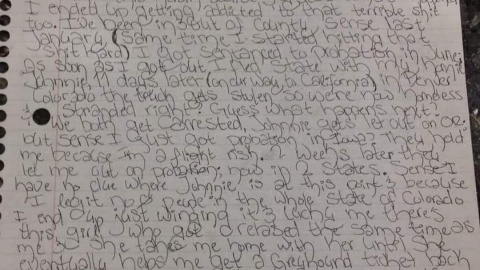 I ended up getting addicted to that terrible shit
too. I've been in & out of County sense last
January (same time I started hitting that
shit hard) I got sentenced to probation in June;
as soon as I got out I left State with my homie
Johnnie, 11 days later (on our way to California) in
Colorado the truck gets stolen so we're now homeless
& stranded right? Guess what happens next?
We both get arrested, Johnnie gets let out on OR;
but sense I just got probation in Iowa? They hold
me because im a flight risk. 2 weeks later they
let me out on probation; now in 2 states. Sense I
have no clue where Johnnie is at this point & because
I legit no 0 people in the whole state of Colorado
I end up just winging it & lucky me there's
this girl who got released the same time as
me & she takes me home with her until she
eventually helps me get a Greyhound ticket back